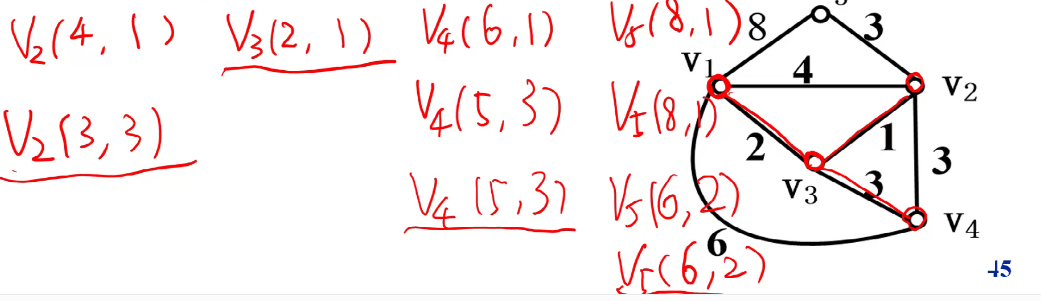 V2(4, 1) V3(2, 1) V4(6,1) V5(8,1)
V2(3,3) V4(5,3) V5(8,1)
V4(5,3) V5(6,2)
V5(6,2)
8
3
v1
4
v2
2
1
3
v3
3
v4
6
45